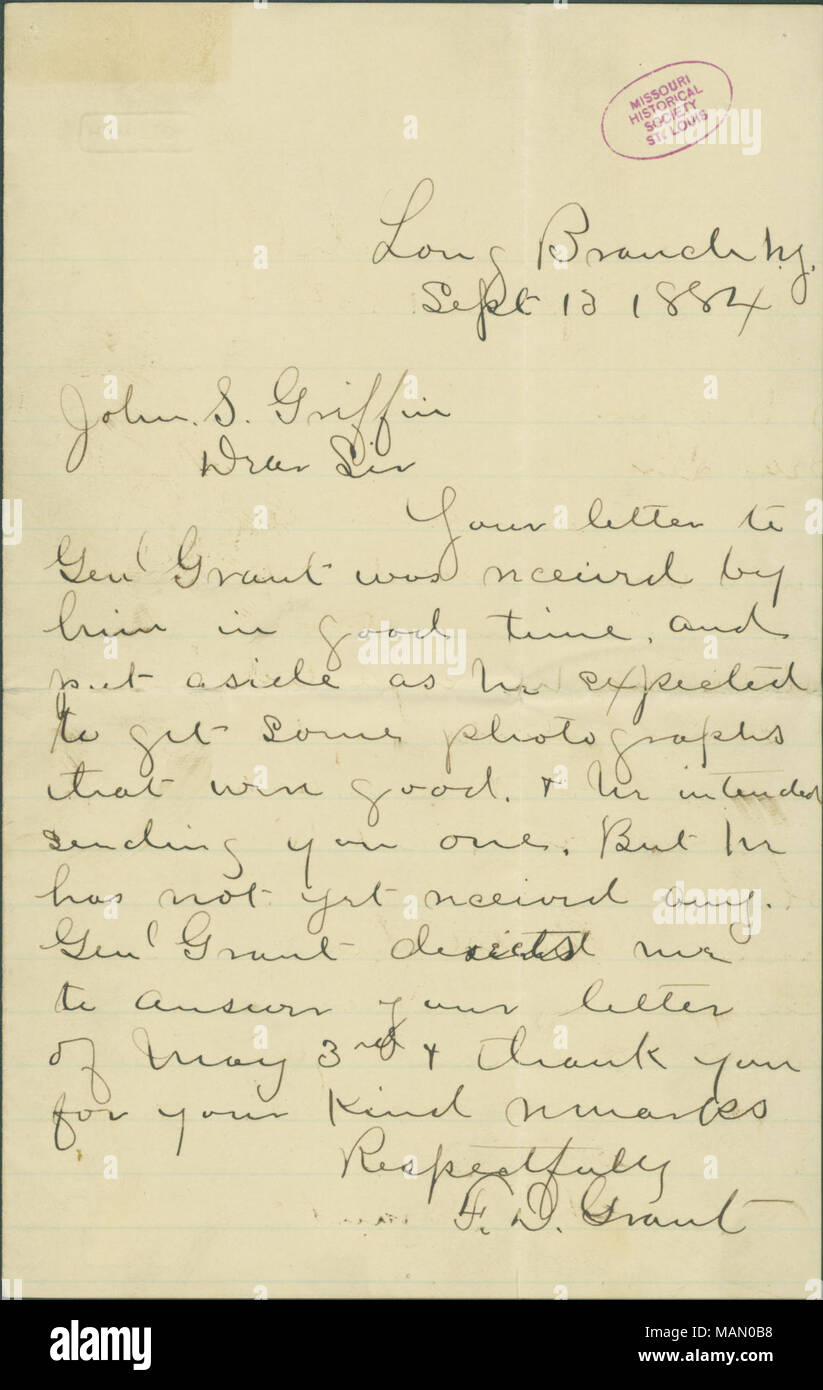 MISSOURI
HISTORICAL
SOCIETY
ST. LOUIS
Long Branch N.J.
Sept 1884
John. S. Griffin
Dear Sir
Your letter to
Genl Grant was received by
him in good time, and
put aside as he expected
to get some photographs
that were good. & he intended
sending you one. But he
has not yet received any.
Genl Grant me
to answer your letter
of May 3rd & thank you
for your kind remarks
Respectfully
F. D. Grant
alamy
Image ID: MAN0B8
www.alamy.com